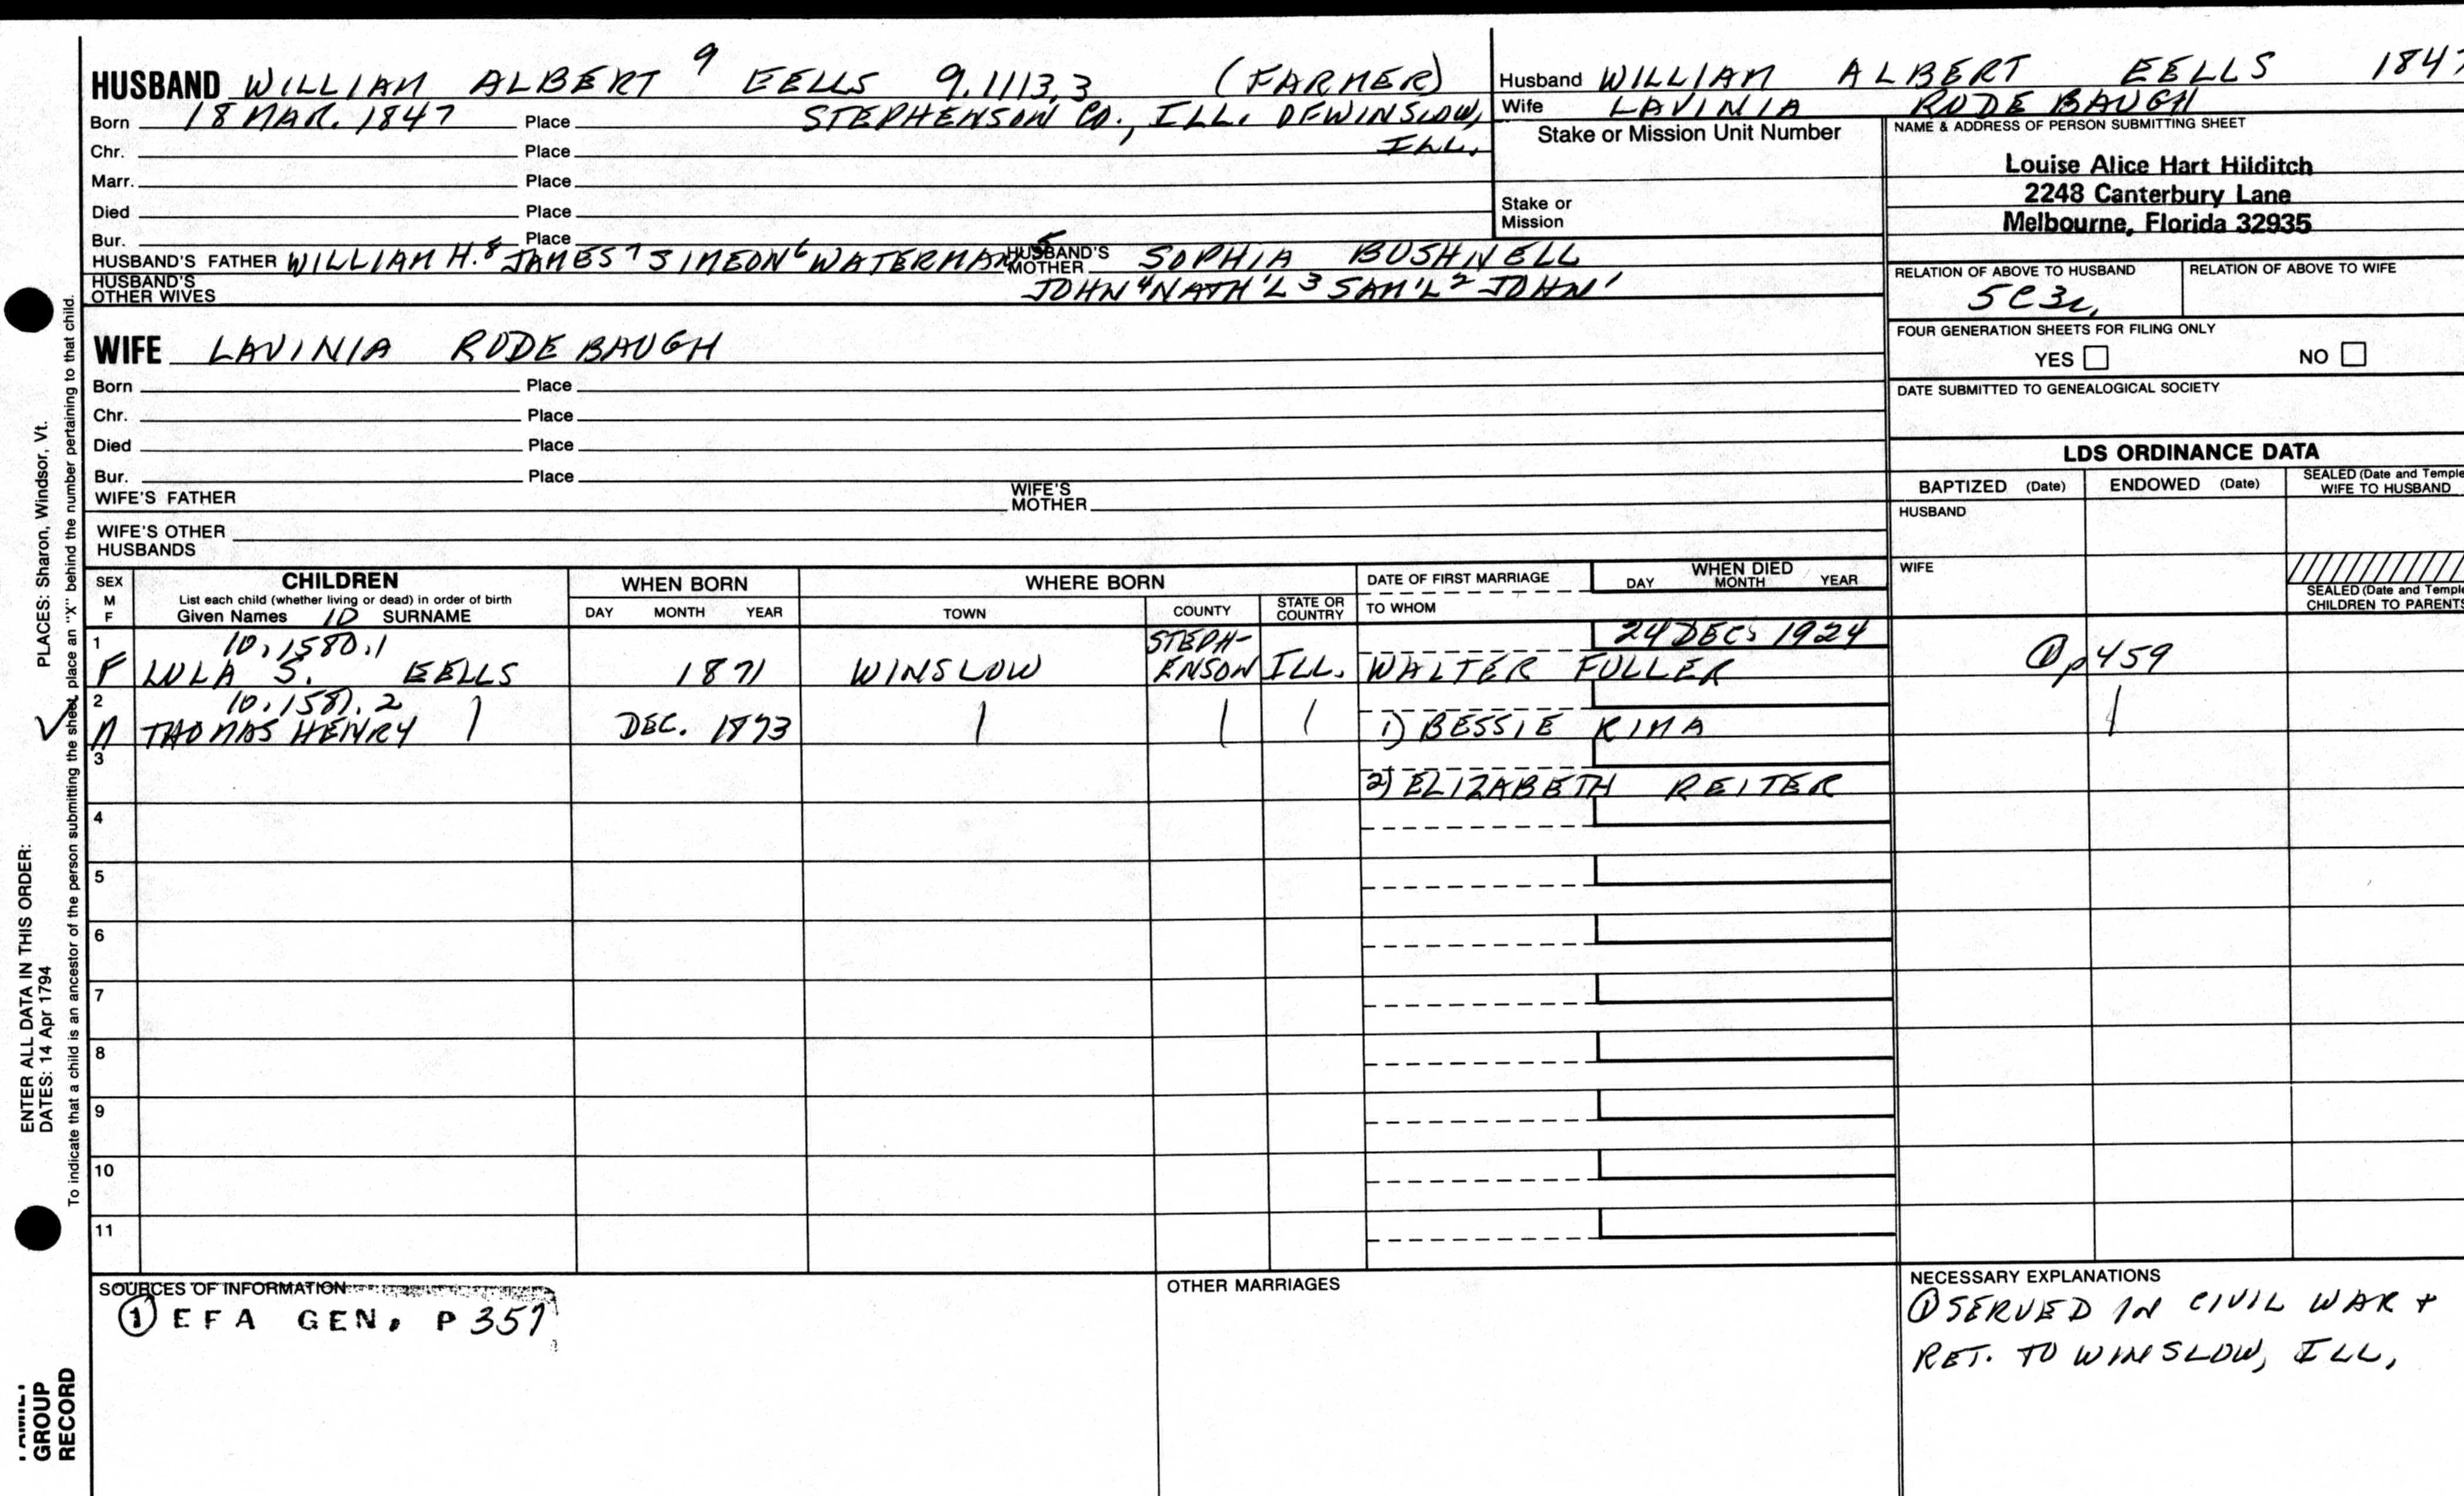 HUSBAND WILLIAM ALBERT 9 EELLS 9.1113.3 (FARMER)
Born 18 MAR. 1847 Place STEPHENSON CO., ILL. OFWINSLOW,
ILL.
Chr. Place
Marr. Place
Died Place
Bur. Place
HUSBAND'S FATHER WILLIAM H.8 JAMES7 SIMEON6 WATERMAN5 HUSBAND'S MOTHER SOPHIA BUSHNELL
HUSBAND'S OTHER WIVES JOHN4 NATH'L3 SAM'L2 JOHN1
WIFE LAVINIA RODEBAUGH
Born Place
Chr. Place
Died Place
Bur. Place
WIFE'S FATHER WIFE'S MOTHER
WIFE'S OTHER HUSBANDS
Husband WILLIAM ALBERT EELLS 1847
Wife LAVINIA RODE BAUGH
Stake or Mission Unit Number
Stake or
Mission
NAME & ADDRESS OF PERSON SUBMITTING SHEET
Louise Alice Hart Hilditch
2248 Canterbury Lane
Melbourne, Florida 32935
RELATION OF ABOVE TO HUSBAND RELATION OF ABOVE TO WIFE
5C3r.
FOUR GENERATION SHEETS FOR FILING ONLY
YES NO
DATE SUBMITTED TO GENEALOGICAL SOCIETY
LDS ORDINANCE DATA
BAPTIZED (Date) ENDOWED (Date) SEALED (Date and Temple
WIFE TO HUSBAND
HUSBAND
WIFE
SEALED (Date and Temple
CHILDREN TO PARENTS
SEX
M
F
CHILDREN
List each child (whether living or dead) in order of birth
Given Names ID SURNAME
WHEN BORN
DAY MONTH YEAR
WHERE BORN
TOWN COUNTY STATE OR COUNTRY
DATE OF FIRST MARRIAGE
TO WHOM
WHEN DIED
DAY MONTH YEAR
1 10.1580.1 STEPH- 24 DEC. 1924
F LULA S. EELLS 1871 WINSLOW ENSON ILL. WALTER FULLER ① p 459
2 10.1581.2
✓ M THOMAS HENRY | DEC. 1873 | | | 1) BESSIE KIMA |
3
2) ELIZABETH REITER
4
5
6
7
8
9
10
11
SOURCES OF INFORMATION
① EFA GEN. P 357
OTHER MARRIAGES
NECESSARY EXPLANATIONS
① SERVED IN CIVIL WAR +
RET. TO WINSLOW, ILL.
PLACES: Sharon, Windsor, Vt.
To indicate that a child is an ancestor of the person submitting the sheet, place an "X" behind the number pertaining to that child.
ENTER ALL DATA IN THIS ORDER:
DATES: 14 Apr 1794
FAMILY
GROUP
RECORD